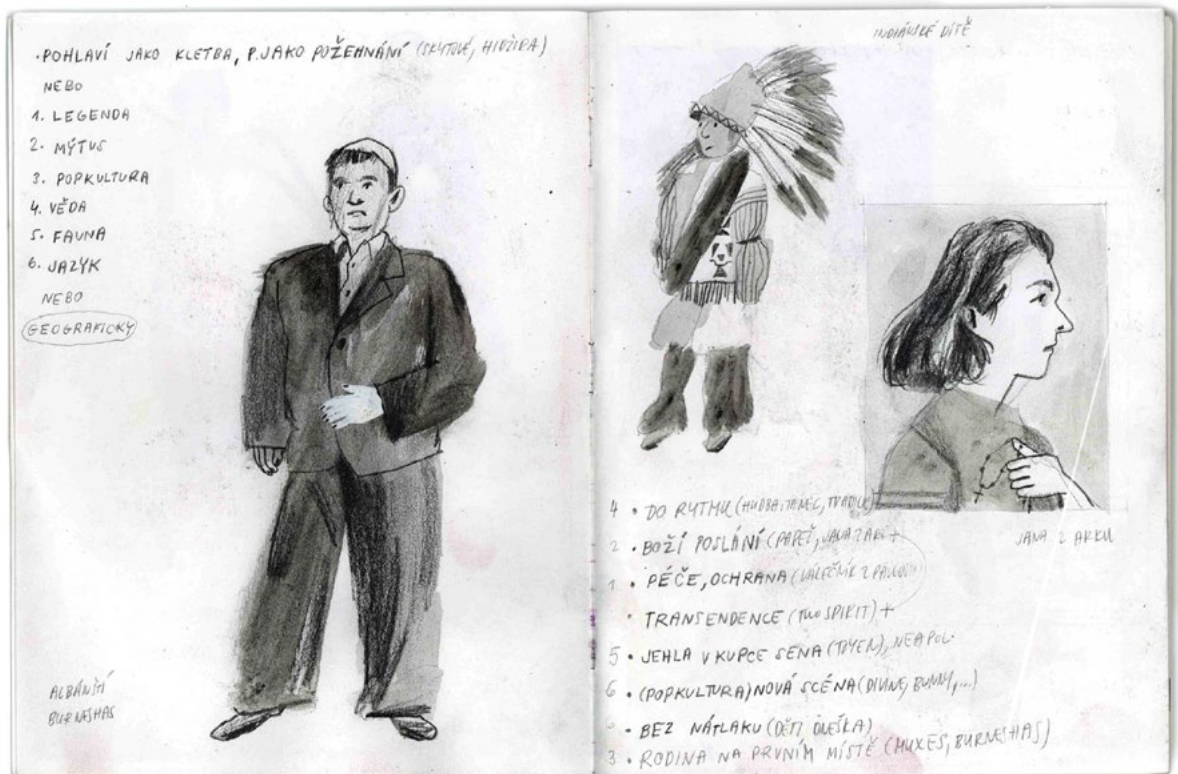 •POHLAVÍ JAKO KLETBA, P. JAKO POŽEHNÁNÍ (SKYTOVÉ, HIDŽRA)
NEBO
1. LEGENDA
2. MÝTUS
3. POPKULTURA
4. VĚDA
5. FAUNA
6. JAZYK
NEBO
GEOGRAFICKY
ALBÁNŠTÍ
BURNESHAS
INDIÁNSKÉ DÍTĚ
JANA Z ARKU
4 • DO RYTMU (HUDBA, TANEC,
2 • BOŽÍ POSLÁNÍ (PAPEŽ, JANA Z ARK +
1 • PÉČE, OCHRANA (VÁLEČNÍK Z
• TRANSENDENCE (TWO SPIRIT) +
5 • JEHLA V KUPCE SENA (TOYEN), NEAPOL
6 • (POPKULTURA) NOVÁ SCÉNA (DIVINE, BUNNY,...)
• BEZ NÁTLAKU (DĚTI DNEŠKA)
3 • RODINA NA PRVNÍM MÍSTĚ (MUXES, BURNESHAS)